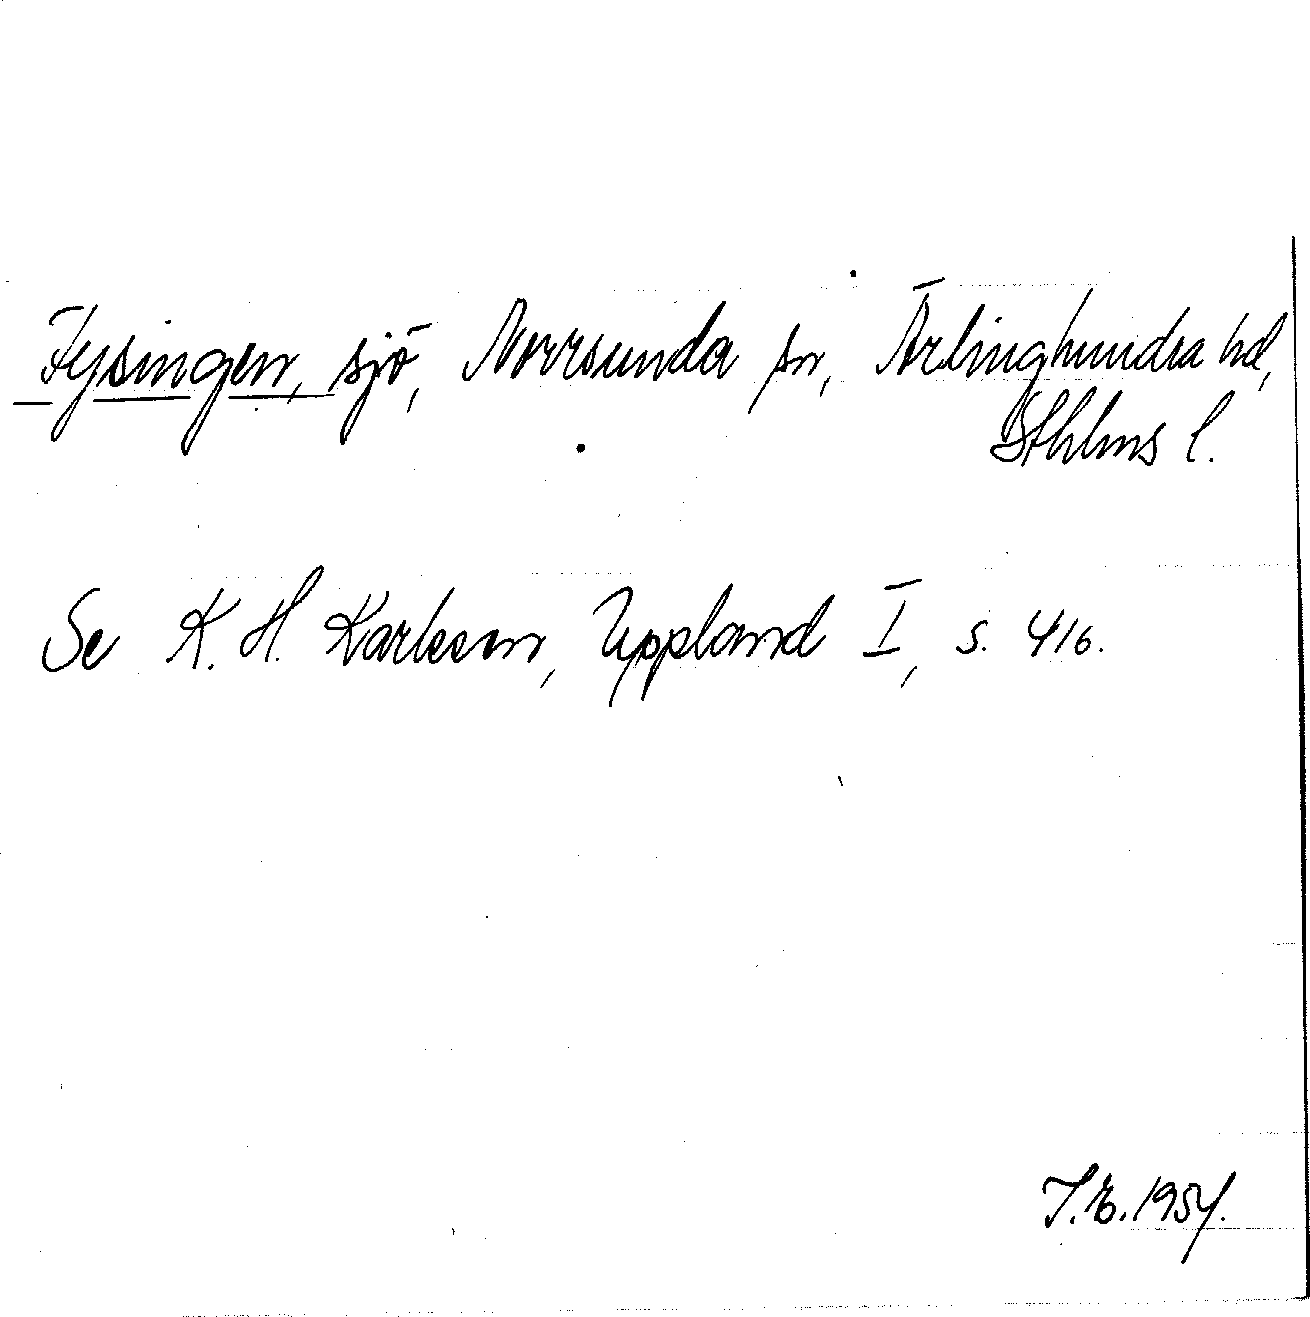 Fysingen, sjö, Norrsunda sn, Ärlinghundra hd,
Sthlms l.
Se K. H. Karlsson, Uppland I, s. 416.
I. E. 1954.